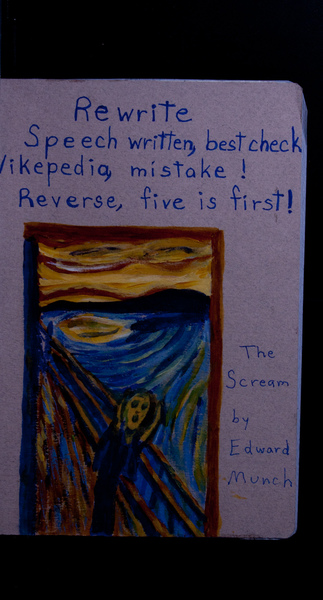 Rewrite
Speech written, best check
Vikepedia, mistake !
Reverse, five is first!
The
Scream
by
Edward
Munch